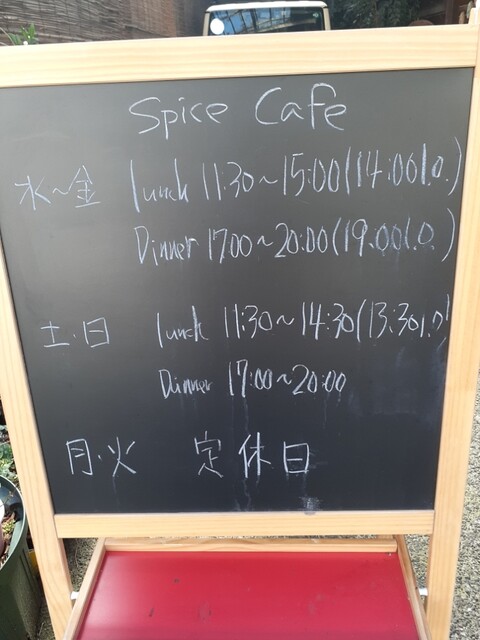 Spice Cafe
水～金 lunch 11:30～15:00(14:00l.o.)
Dinner 17:00～20:00(19:00l.o.)
土・日 lunch 11:30～14:30(13:30l.o)
Dinner 17:00～20:00
月・火 定休日